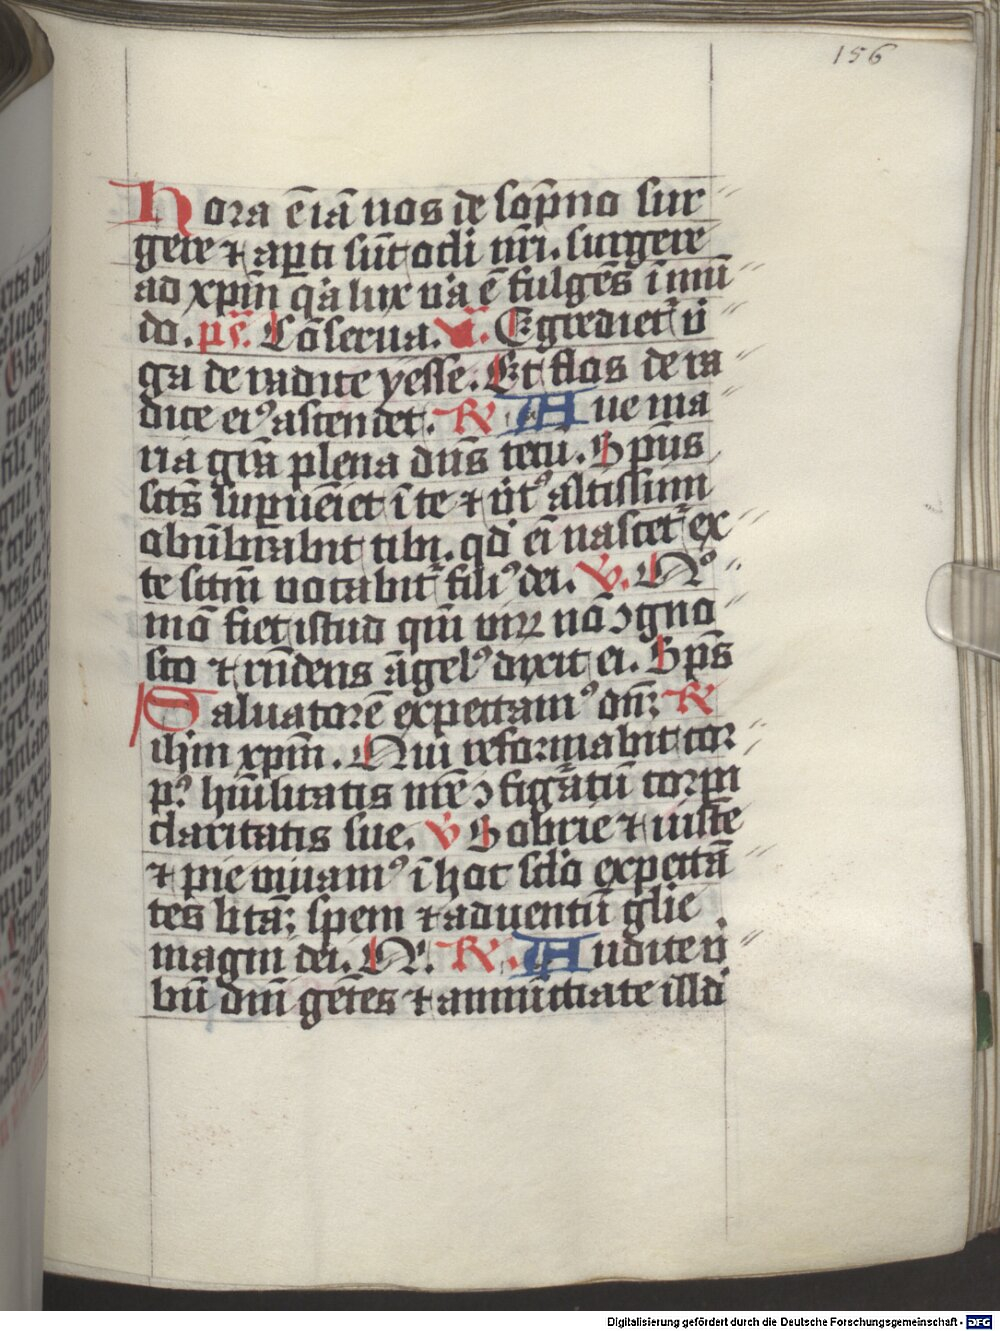 156
Hora ē iā nos de sōpno sur
gere ⁊ apti sūt oc̄li nr̄i. surgere
ad xp̄m q̄a lux v̄a ē fulgēs ī mū
do. ps̄. Cōserua. V̄. Egrediet̄ v̄
ga de radice yesse. Et flos de ra
dice eiꝰ ascendet. R̄ Aue ma
ria gr̄a plena dn̄s tecū. Sp̄us
sct̄s supuēiet ī te ⁊ v̄tꝰ altissimi
obūbrabit tibi. qd̄ ei nascet̄ ex
te sctm̄ vocabit̄ filiꝰ dei. V̄. Qꝰ
mō fiet istud qm̄ virꝝ nō ꝯgno
sco ⁊ rn̄dens āgelꝰ dixit ei. Sp̄s
Saluatorē expectamꝰ dn̄m R̄
ihm xp̄m. Qui reformabit cor
pꝰ hūilitatis nr̄e ꝯfigatū corpi
claritatis sue. V̄ Sobrie ⁊ iuste
⁊ pie viuamꝰ ī hoc sclo expectā
tes btām spem ⁊ aduentū glie
magni dei. Q. R̄. Audite v̄
bū dn̄i gētes ⁊ annūtiate illd
Digitalisierung gefördert durch die Deutsche Forschungsgemeinschaft - DFG